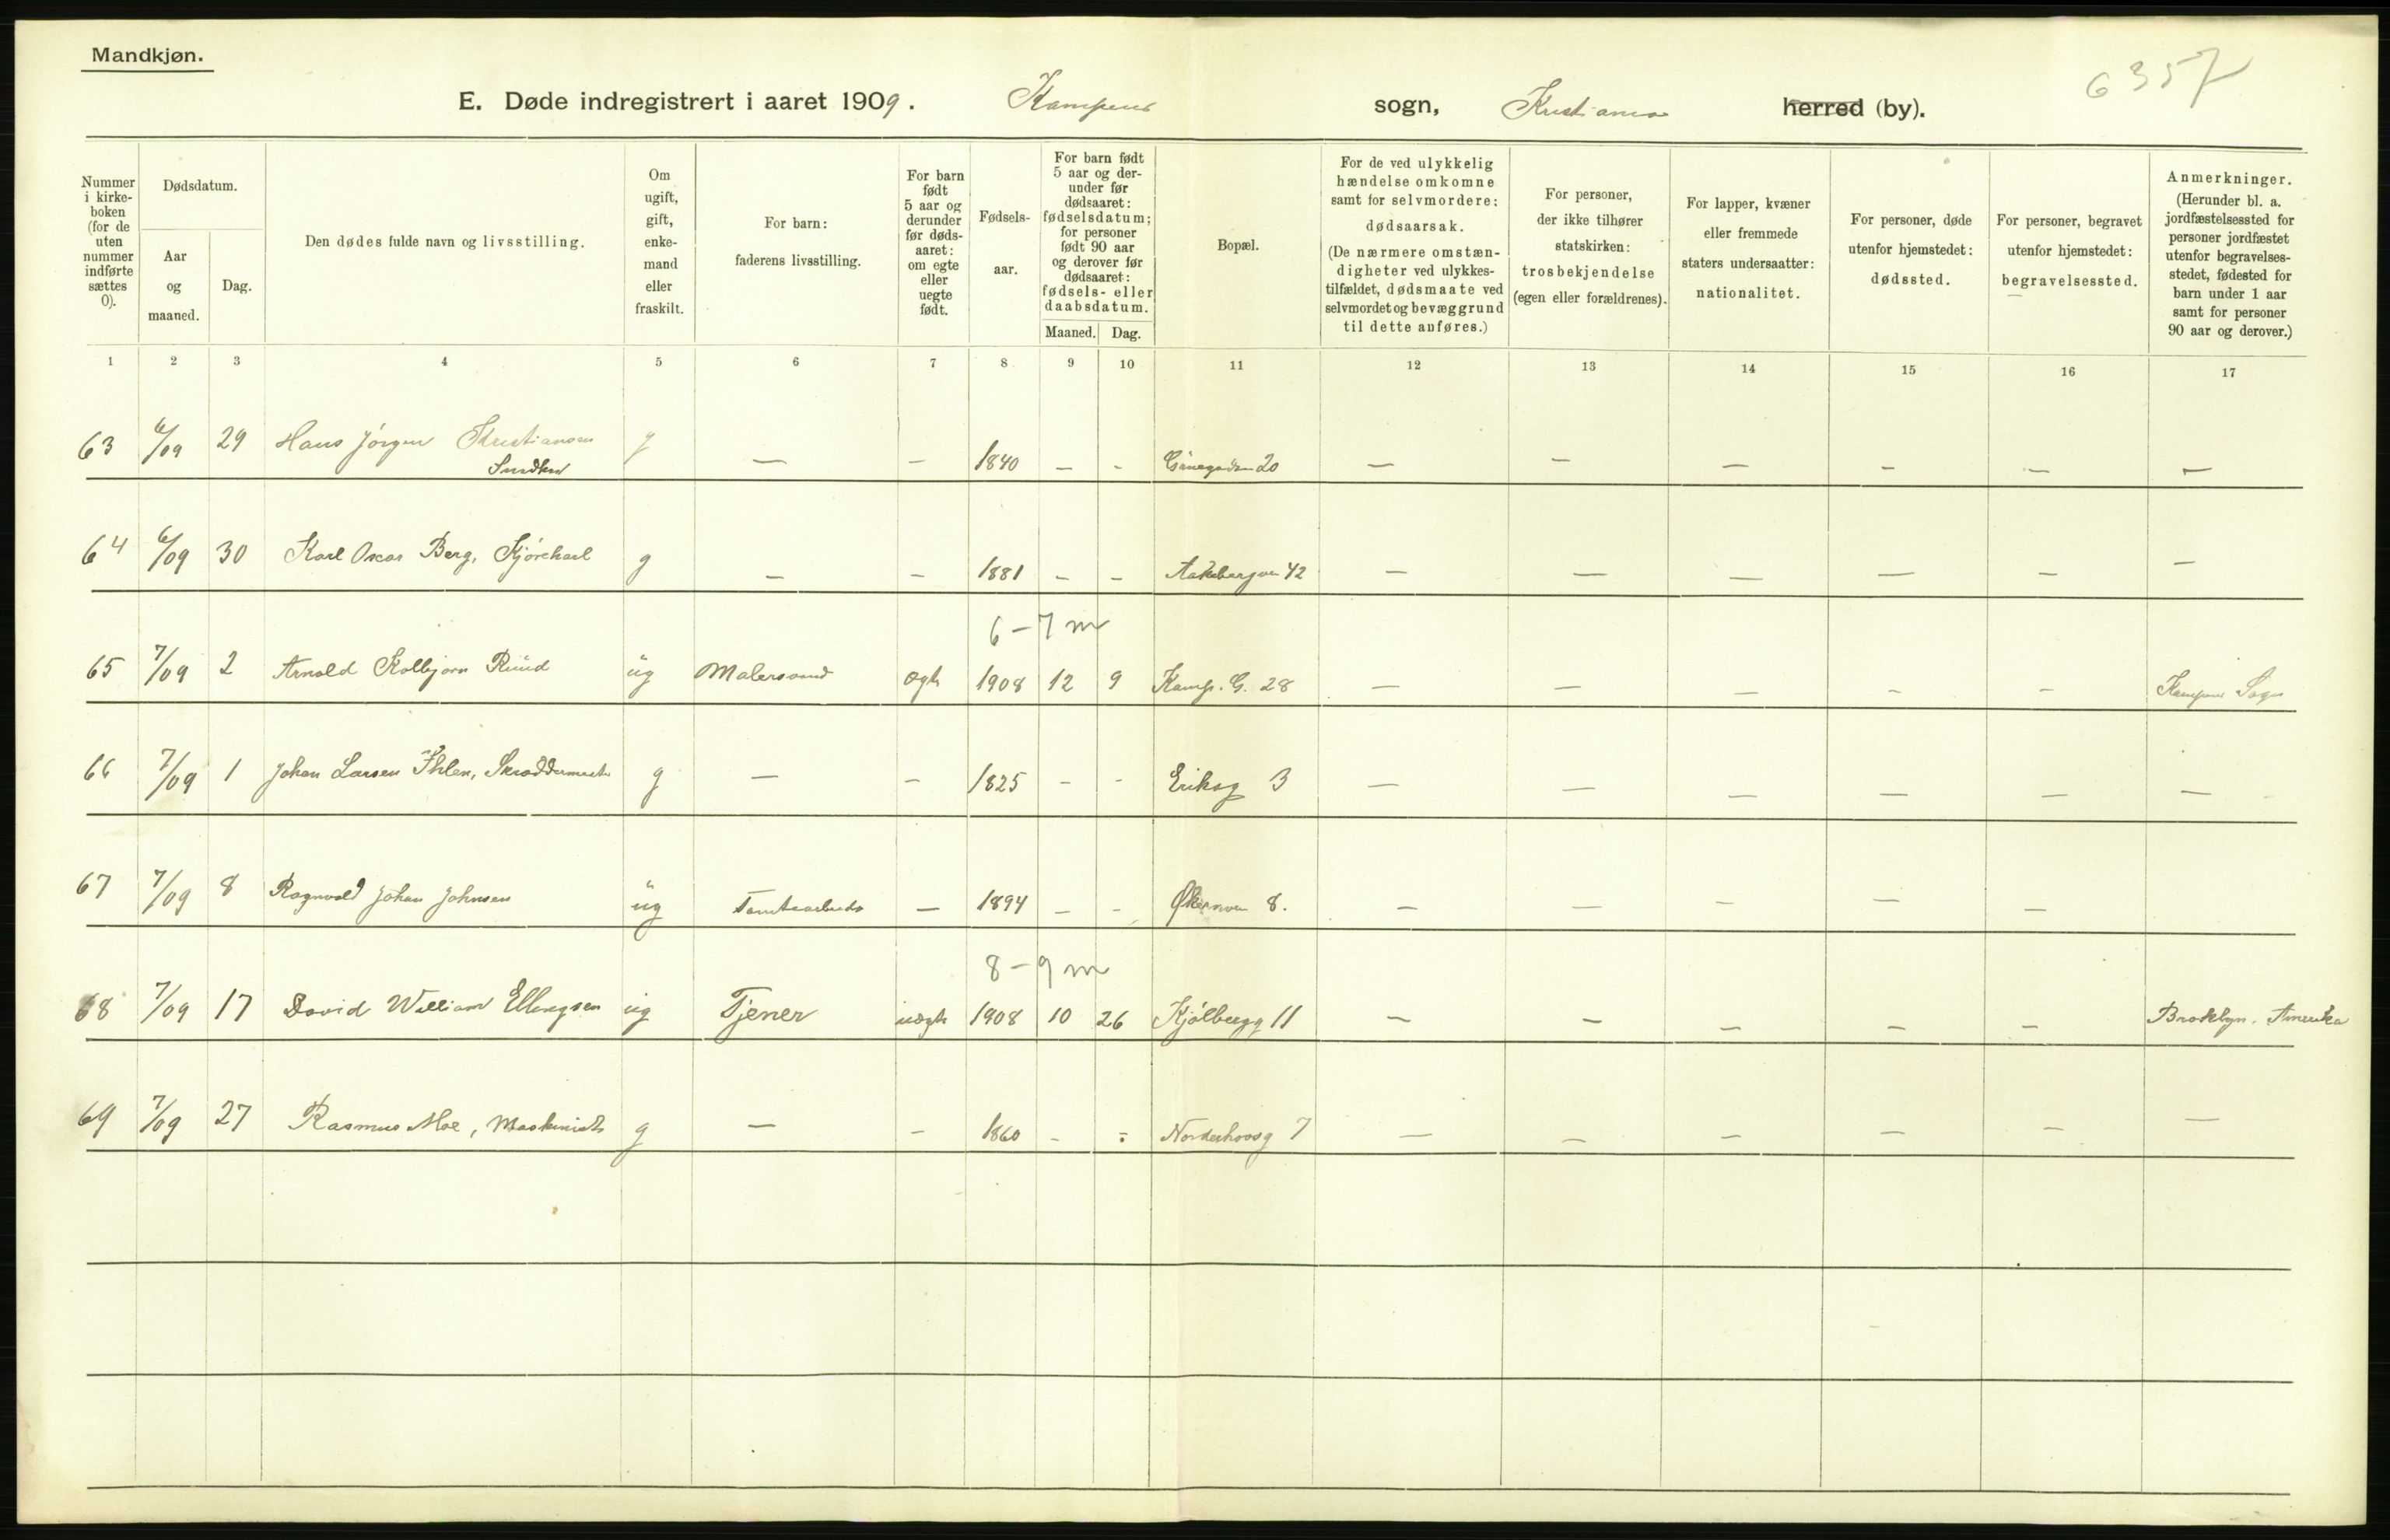 Mandkjøn.
6357
E. Døde indregistrert i aaret 1909. Kampens sogn, Kristiania herred (by).
Nummer i kirke-boken (for de uten nummer indførte sættes 0).
Dødsdatum.
Aar og maaned.
Dag.
Den dødes fulde navn og livsstilling.
Om ugift, gift, enke-mand eller fraskilt.
For barn: faderens livsstilling.
For barn født 5 aar og derunder før døds-aaret: om egte eller uegte født.
Fødsels-aar.
For barn født 5 aar og der-under før dødsaaret: fødselsdatum; for personer født 90 aar og derover før dødsaaret: fødsels- eller daabsdatum.
Maaned. Dag.
Bopæl.
For de ved ulykkelig hændelse omkomne samt for selvmordere: dødsaarsak. (De nærmere omstæn-digheter ved ulykkes-tilfældet, dødsmaate ved selvmordet og bevæggrund til dette anføres.)
For personer, der ikke tilhører statskirken: trosbekjendelse (egen eller forældrenes).
For lapper, kvæner eller fremmede staters undersaatter: nationalitet.
For personer, døde utenfor hjemstedet: dødssted.
For personer, begravet utenfor hjemstedet: begravelsessted.
Anmerkninger. (Herunder bl. a. jordfæstelsessted for personer jordfæstet utenfor begravelses-stedet, fødested for barn under 1 aar samt for personer 90 aar og derover.)
1 2 3 4 5 6 7 8 9 10 11 12 13 14 15 16 17
63 6/09 29 Hans Jörgen Kristiansen g — — 1840 — - 20 — — — — — —
Snedker
64 6/09 30 Karl Oscar Berg, Kjörekarl g — — 1881 — — Aakebergvn 42 — — — — — —
6–7 m
65 7/09 2 Arnold Kolbjørn Ruud ug Malersvend ægte 1908 12 9 Kamp. G. 28 — — — — — Kampens Sogn
66 7/09 1 Johan Larsen Ihlen, Skræddermester g — — 1825 - - Eriksg 3 — — — — — —
67 7/09 8 Ragnvald Johan Johnsen ug Tomtearbeider — 1894 — - Økernvn 8. — — — — —
8–9 m
68 7/09 17 David William Ellingsen ug Tjener uægte 1908 10 26 Kjölbergg 11 — — — — — Broklyn. Amerika
69 7/09 27 Rasmus Moe, Maskinist g — — 1860 - - Norderhovsg 7 — — — — — —